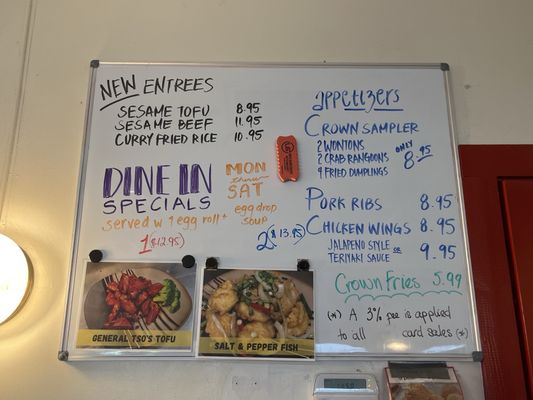 NEW ENTREES
SESAME TOFU 8.95
SESAME BEEF 11.95
CURRY FRIED RICE 10.95
DINE IN
SPECIALS
MON
thru
SAT
served w 1 egg roll +
egg drop
soup
1 ($12.95)
2 ($13.95)
GENERAL TSO'S TOFU
SALT & PEPPER FISH
appetizers
CROWN SAMPLER
2 WONTONS
2 CRAB RANGOONS
4 FRIED DUMPLINGS
ONLY
8.95
PORK RIBS 8.95
CHICKEN WINGS 8.95
JALAPENO STYLE or
TERIYAKI SAUCE 9.95
Crown Fries 5.99
(*) A 3% fee is applied
to all card sales (*)